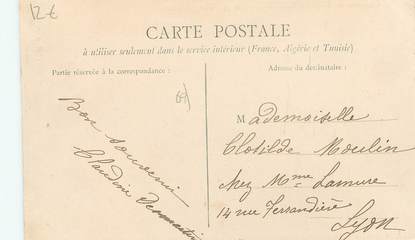 12 €
CARTE POSTALE
à utiliser seulement dans le service intérieur (France, Algérie et Tunisie)
Partie réservée à la correspondance :
Adresse du destinataire :
Bon souvenir
Claudine
Mademoiselle
Clotilde Moulin
chez Mme Lamure
14 rue Ferrandière
Lyon